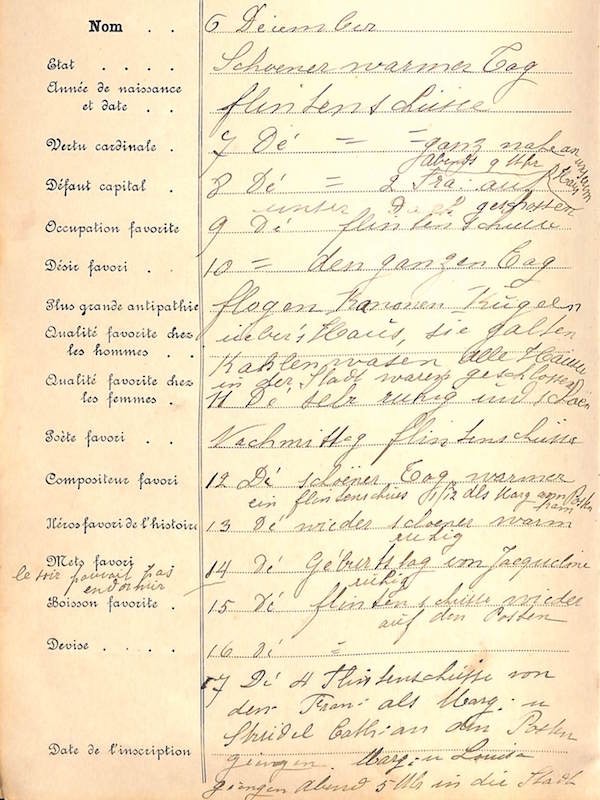 Nom . . 6 December
Etat . . . . Schoener warmer Tag
Année de naissance
et date . . flintenschüsse
Vertu cardinale . 7 Dé = = ganz nahe an unserem Haus
abends 9 Uhr
Défaut capital . 8 Dé = 2 Fra: auf
unser Dach geschossen
Occupation favorite 9 Dé flintenschüsse
Désir favori . . 10 = den ganzen Tag
Plus grande antipathie flogen Kanonen Kugeln
Qualité favorite chez
les hommes . . ueber's Haus, sie galten
Kahlenwasen alle Häuser
in der Stadt waren geschlossen
Qualité favorite chez
les femmes . 11 Dé sehr ruhig und schoen
Poète favori . . Nachmittag flintenschüsse
Compositeur favori 12 Dé schoener Tag warmer
ein flintenschuss als Marg am Posten
Héros favori de l'histoire 13 Dé wieder schoener warm
ruhig
Mets favori 14 Dé Geburtstag von Jacqueline
ruhig
le soir pouvait pas
endormir
Boisson favorite . 15 Dé flintenschüsse wieder
auf den Posten
Devise . . . . . 16 Dé =
17 Dé 4 Flintenschüsse von
den Fran: als Marg: u
Strüdel Cath: an den Posten
Date de l'inscription giengen. Marg: u Louise
giengen Abend 5 Uhr in die Stadt